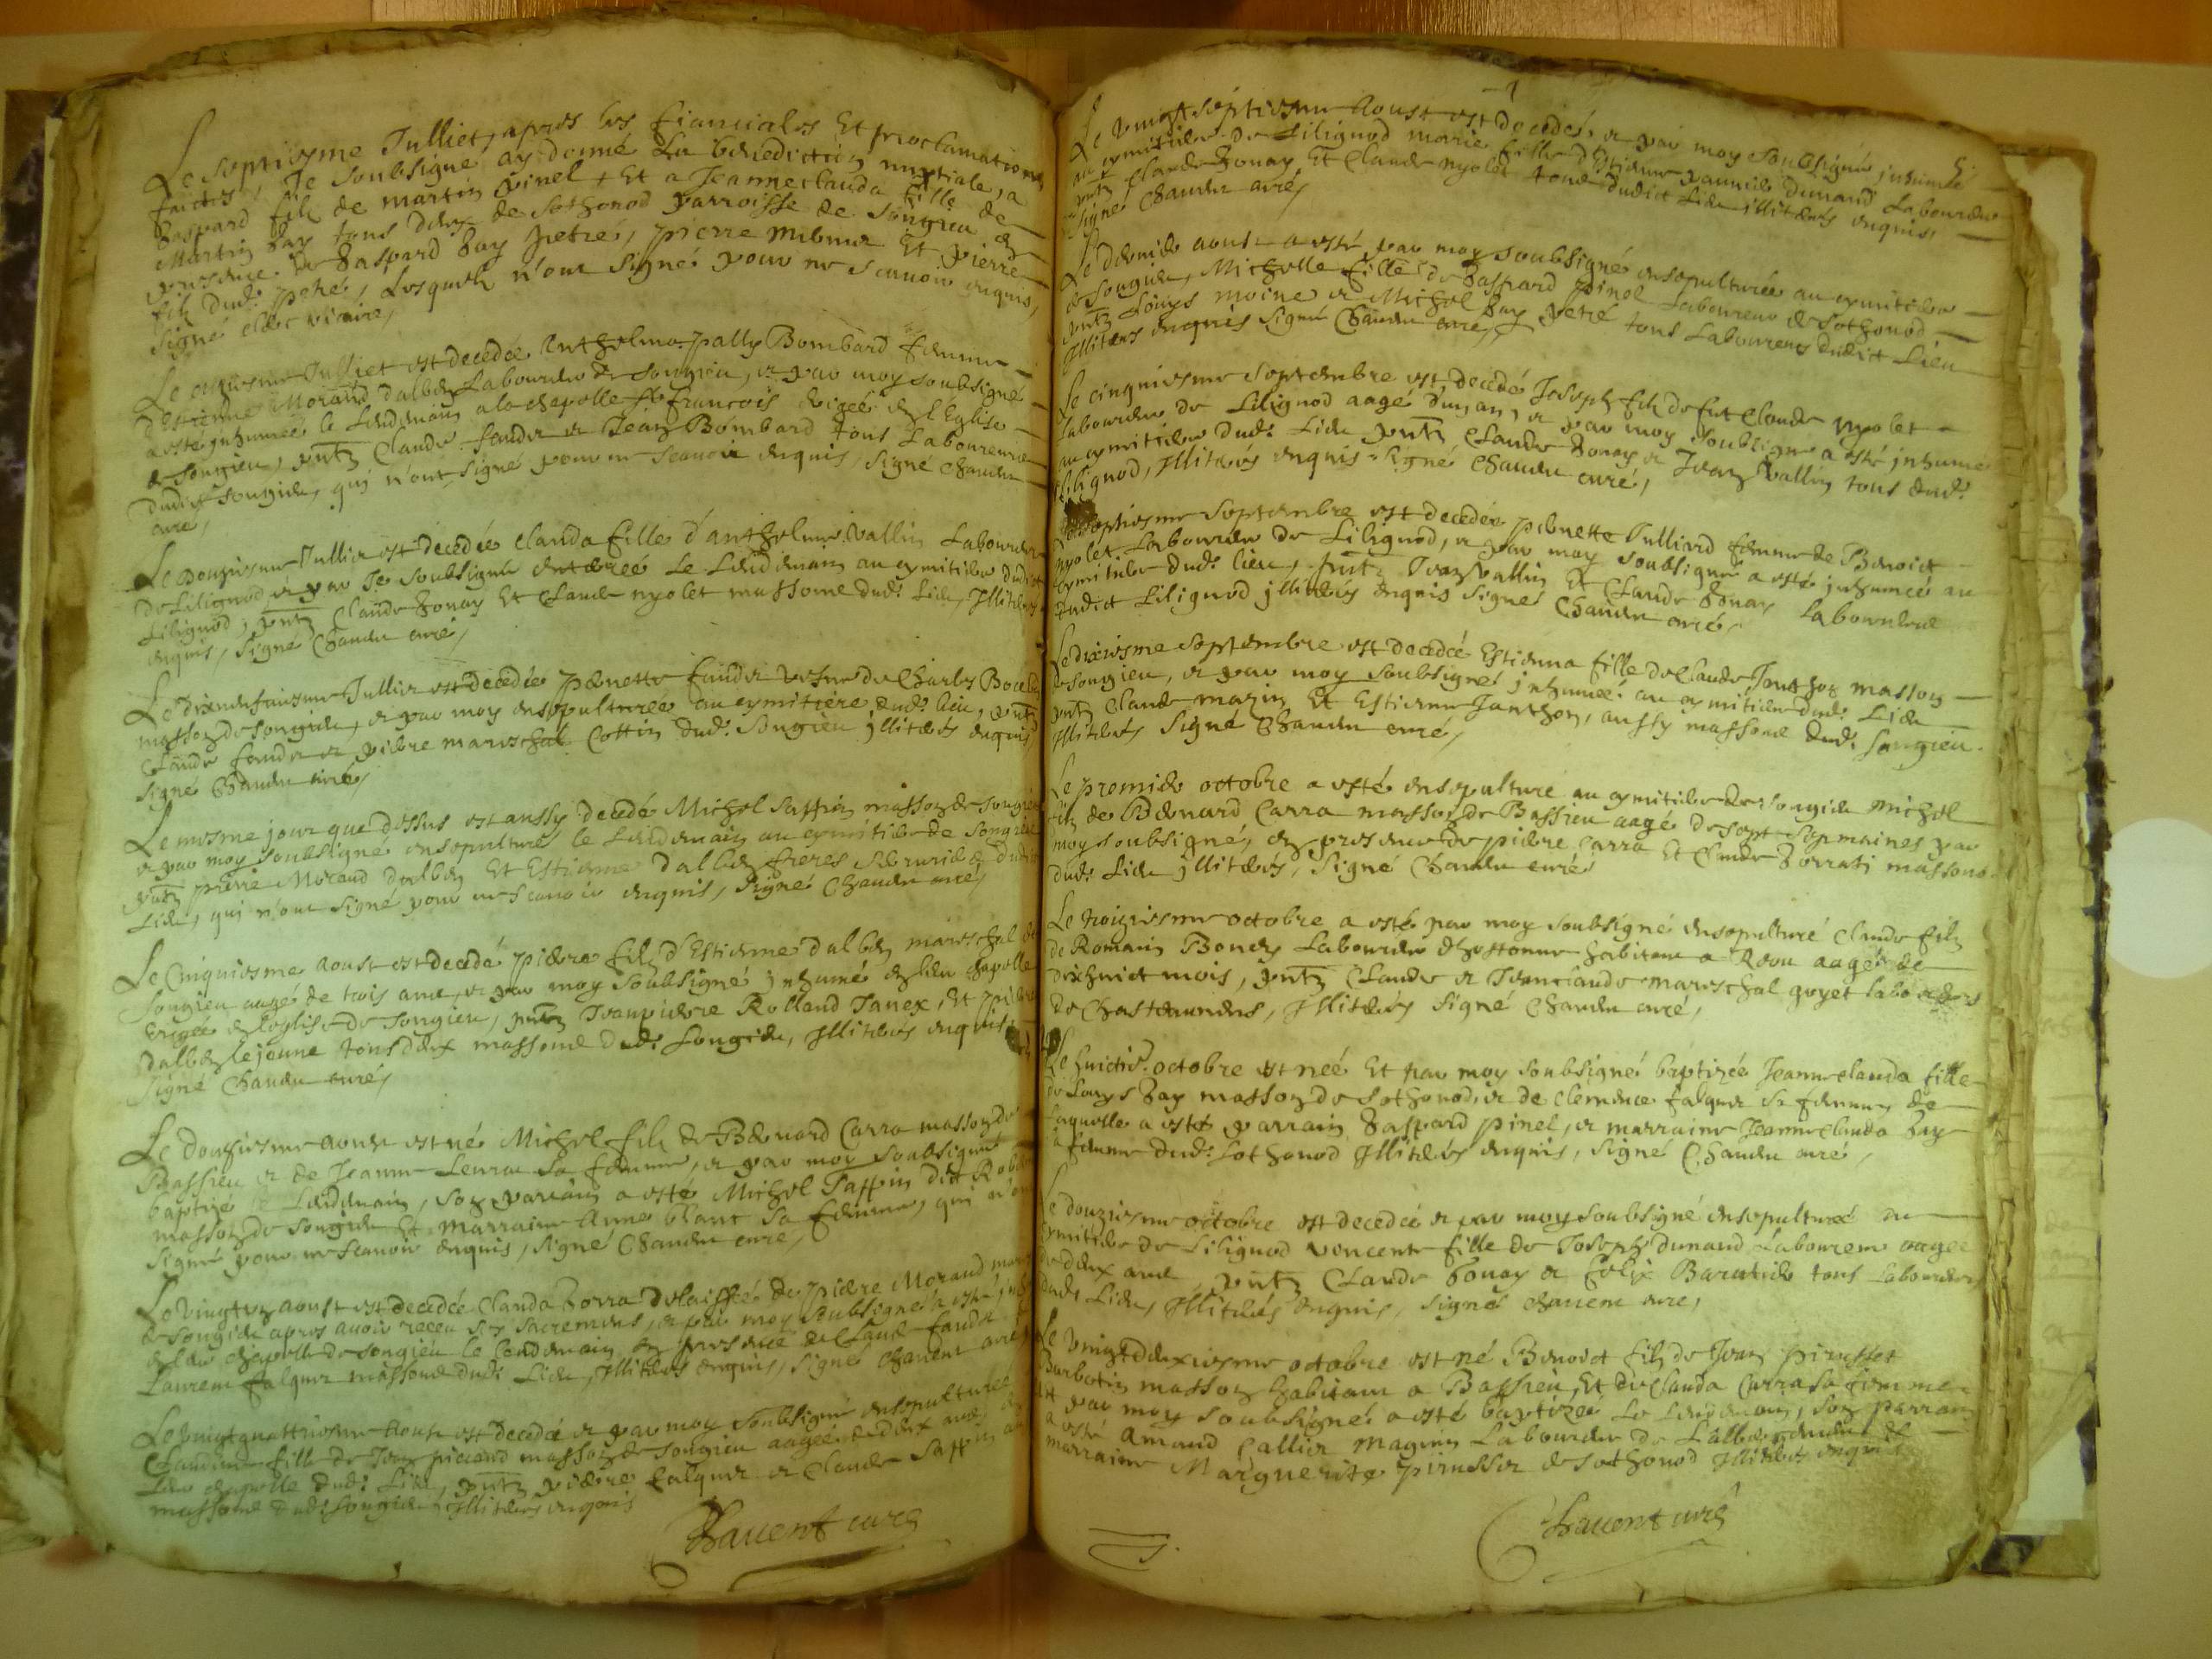 Le septiesme Julliet, apres les fianciales Et proclamations
faictes, Je soubsigné ay donné La benediction nuptiale, a
Gaspard filz de martin pinel, Et a Jeanneclauda fille de
Martin Gay tous deux de Sothonod parroisse de Songieu en
presence De Gaspard Gay petré, pierre mibmur Et pierre
filz dud. petré, Lesquelz n'ont signé pour ne scavoir enquis,
signé vicaire,
Le onziesme Julliet est decedée Anthelma pally Bombard femme
d'Estienne Morand dalben Laboureur de songieu, et par moy soubsigné
a esté inhumée le Lendemain a la chapelle St francois erigée en l'Eglise
de songieu, pntz Claude fander et Jean Bombard tous Laboureurs
dudict songieu, qui n'ont signé pour ne scavoir enquis, signé Chauent
curé,
Le Douziesme Julliet est decedée clauda fille d'anthelme vallin Laboureur
de Lilignod, et par Je soubsigné enterrée Le Lendemain au cymitiere dudict
Lilignod, pntz Claude Gonay Et Claude myolet massons dud. Lieu, Illiterés
enquis, signé Chauent curé,
Le dixneufviesme Julliet est decedée pernette fander vefve de Charles
masson de songieu, et par moy ensepulturée au cymitiere dud. lieu, pntz
Claude fander et pierre mareschal Cottin dud. songieu illiterés enquis
signé Chauent curé,
Le mesme jour que dessus est aussy decedé Michel Sappin masson de songieu
et par moy soubsigné ensepulturé le Lendemain au cymitiere de songieu
pntz pierre Morand dalben Et Estienne dalben freres dudict
Lieu, qui n'ont signé pour ne scavoir enquis, signé Chauent curé,
Le Cinquiesme Aoust est decedé pierre filz d'Estienne dalben mareschal de
songieu aagé de trois ans, et par moy soubsigné inhumé en leur chapelle
erigée en l'eglise de songieu, pntz Jeanpierre Rolland Janex, Et pierre
dalben le jeune tous deux massons dud. songieu, Illiterés enquis,
signé Chauent curé,
Le douziesme aoust est né Michel filz de Bernard Carra masson de
Bassieu et de Jeanne sa femme, et par moy soubsigné
baptizé le Lendemain, son parrain a esté Michel Sappin dict
masson de songieu Et marraine Anne blanc sa femme, qui n'ont
signé pour ne scavoir enquis, signé Chauent curé,
Le vingt aoust est decedée Clauda Zorra delaissée de pierre Morand
de songieu apres avoir receu ses sacremens, et par moy soubsigné a esté
en leur chapelle de songieu le Lendemain en presence de Claude fander
Laurent falquet massons dud. Lieu, Illiterés enquis, signé Chauent curé
Le vingtquattriesme Aoust est decedée et par moy soubsigné ensepulturée
Claudine fille de Jean picand masson de songieu aagée de deux ans, en
leur chapelle dud. Lieu, pntz pierre falquet et Claude Sappin
massons dud. songieu, Illiterés enquis
Chauent curé
5
Le vingtseptiesme Aoust est decedée et par moy soubsigné inhumée
au cymitiere de Lilignod marie fille d'Estienne dunand Laboureur
pntz Claude Gonay Et Claude myolet tous dudict Lieu illiterés enquis,
signé Chauent curé,
Le dernier aoust a esté par moy soubsigné ensepulturée au cymitiere
de songieu, Michelle fille de Gaspard pinel Laboureur de Sothonod
pntz Louys moine et Michel Gay petré tous Laboureurs dudict Lieu
Illiterés enquis signé Chauent curé,
Le cinquiesme septembre est decedé Joseph filz de fut Claude myolet
Laboureur de Lilignod aagé d'un an, et par moy soubsigné a esté inhumé
au cymitiere dud. Lieu pntz Claude Gonay et Jean vallin tous dud.
Lilignod, Illiterés enquis signé Chauent curé,
Le septiesme septembre est decedée pernette Julliard femme de Benoict
myolet Laboureur de Lilignod, et par moy soubsigné a esté inhumée au
cymitiere dud. lieu, pntz Jean vallin Et Claude Gonay Laboureurs
dudict Lilignod illiterés enquis signé Chauent curé,
Le dixiesme septembre est decedée Estienna fille de Claude Janthon masson
de songieu, et par moy soubsigné inhumée au cymitiere dud. Lieu
pntz Claude mazin Et Estienne Janthon, aussy massons dud. songieu
Illiterés signé Chauent curé,
Le premier octobre a esté ensepulturé au cymitiere de songieu Michel
filz de Bernard Carra masson de Bassieu aagé de sept sepmaines par
moy soubsigné, en presence de pierre Carra Et Claude Zorrati massons
dud. Lieu illiterés, signé Chauent curé
Le troiziesme octobre a esté par moy soubsigné ensepulturé Claude filz
de Romain Bonen Laboureur d'hostonne habitant a aagé de
dixhuict mois, pntz Claude et Jeanclaude mareschal goyet laboureurs
de Chastenmens, Illiterés signé Chauent curé,
Le huictie. octobre est née Et par moy soubsigné baptizée Jeanneclauda fille
de Louys Gay masson de Sothonod, et de Clemence falquet sa femme, de
Laquelle a esté parrain Gaspard pinel, et marraine Jeanneclauda Gay
sa femme dud. Sothonod Illiterés enquis, signé Chauent curé,
Le douziesme octobre est decedée et par moy soubsigné ensepulturée au
cymitiere de Lilignod vincente fille de Joseph dunand Laboureur aagée
de deux ans, pntz Claude Gonay et felix tous Laboureurs
dud. Lieu, Illiterés enquis, signé Chauent curé,
Le vingtdeuxiesme octobre est né Benoict filz de Jean pirusset
Barbotin masson habitant a Bassieu, Et de Clauda Carra sa femme
Et par moy soubsigné a esté baptizée Le Lendemain, son parrain
a esté Amand Callier magnin Laboureur de
marraine Marguerite pirusset de Sothonod Illiterés enquis
Chauent curé